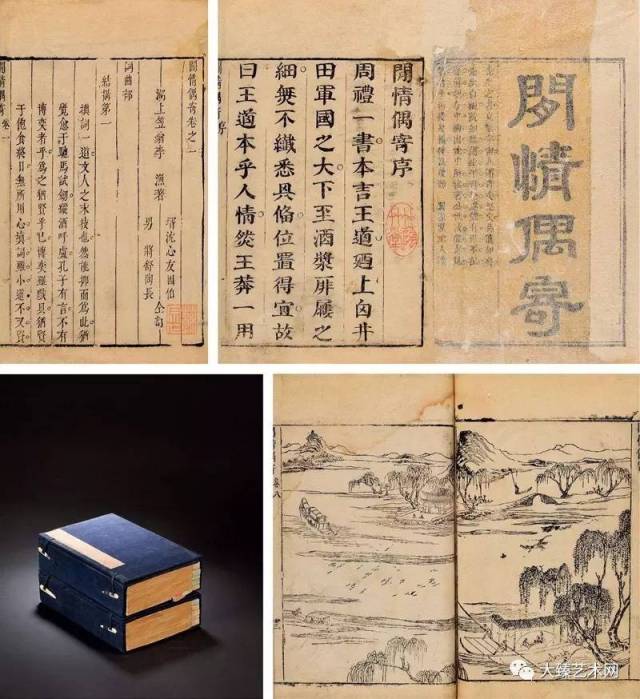 閒情偶寄卷之一
湖上笠翁李漁著
壻沈心友因伯
男將舒陶長
仝訂
詞曲部
結搆第一
填詞一道文人之末技也然能抑而為此猶
覺愈于馳馬試劍縱酒呼盧孔子有言不有
博奕者乎為之猶賢乎已博奕雖戲具猶賢
于飽食終日無所用心填詞雖小道不又賢
閒情偶寄
閒情偶寄序
周禮一書本言王道廼上自井
田軍國之大下至酒漿屝屨之
細無不纖悉具備位置得宜故
曰王道本乎人情然王莽一用
卷八
大臻艺术网